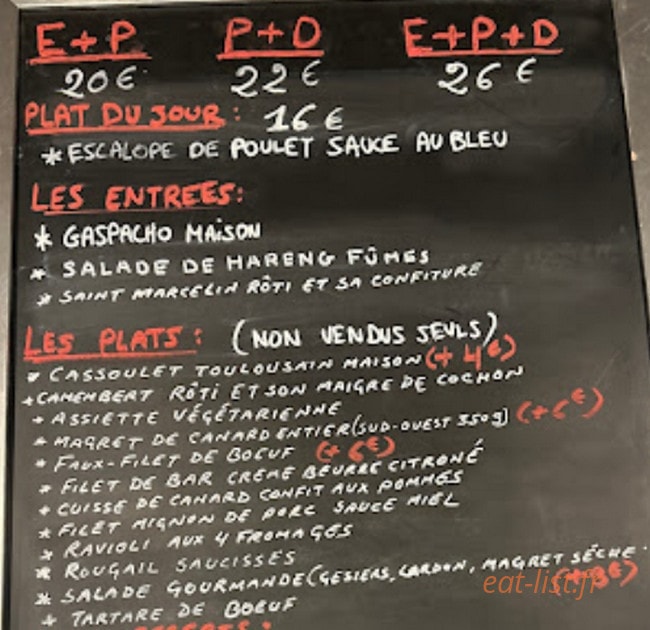 E+P P+D E+P+D
20€ 22€ 26€
PLAT DU JOUR: 16€
* ESCALOPE DE POULET SAUCE AU BLEU
LES ENTREES:
* GASPACHO MAISON
* SALADE DE HARENG FÛMES
* SAINT MARCELIN RÔTI ET SA CONFITURE
LES PLATS: (NON VENDUS SEULS)
* CASSOULET TOULOUSAIN MAISON (+4€)
* CAMEMBERT RÔTI ET SON MAIGRE DE COCHON
* ASSIETTE VÉGÉTARIENNE
* MAGRET DE CANARD ENTIER (SUD-OUEST 350g) (+6€)
* FAUX-FILET DE BOEUF (+6€)
* FILET DE BAR CRÈME BEURRE CITRONÉ
* CUISSE DE CANARD CONFIT AUX POMMES
* FILET MIGNON DE PORC SAUCE MIEL
* RAVIOLI AUX 4 FROMAGES
* ROUGAIL SAUCISSES
* SALADE GOURMANDE (GESIERS, LARDON, MAGRET SÉCHE
eat-list.fr
* TARTARE DE BOEUF